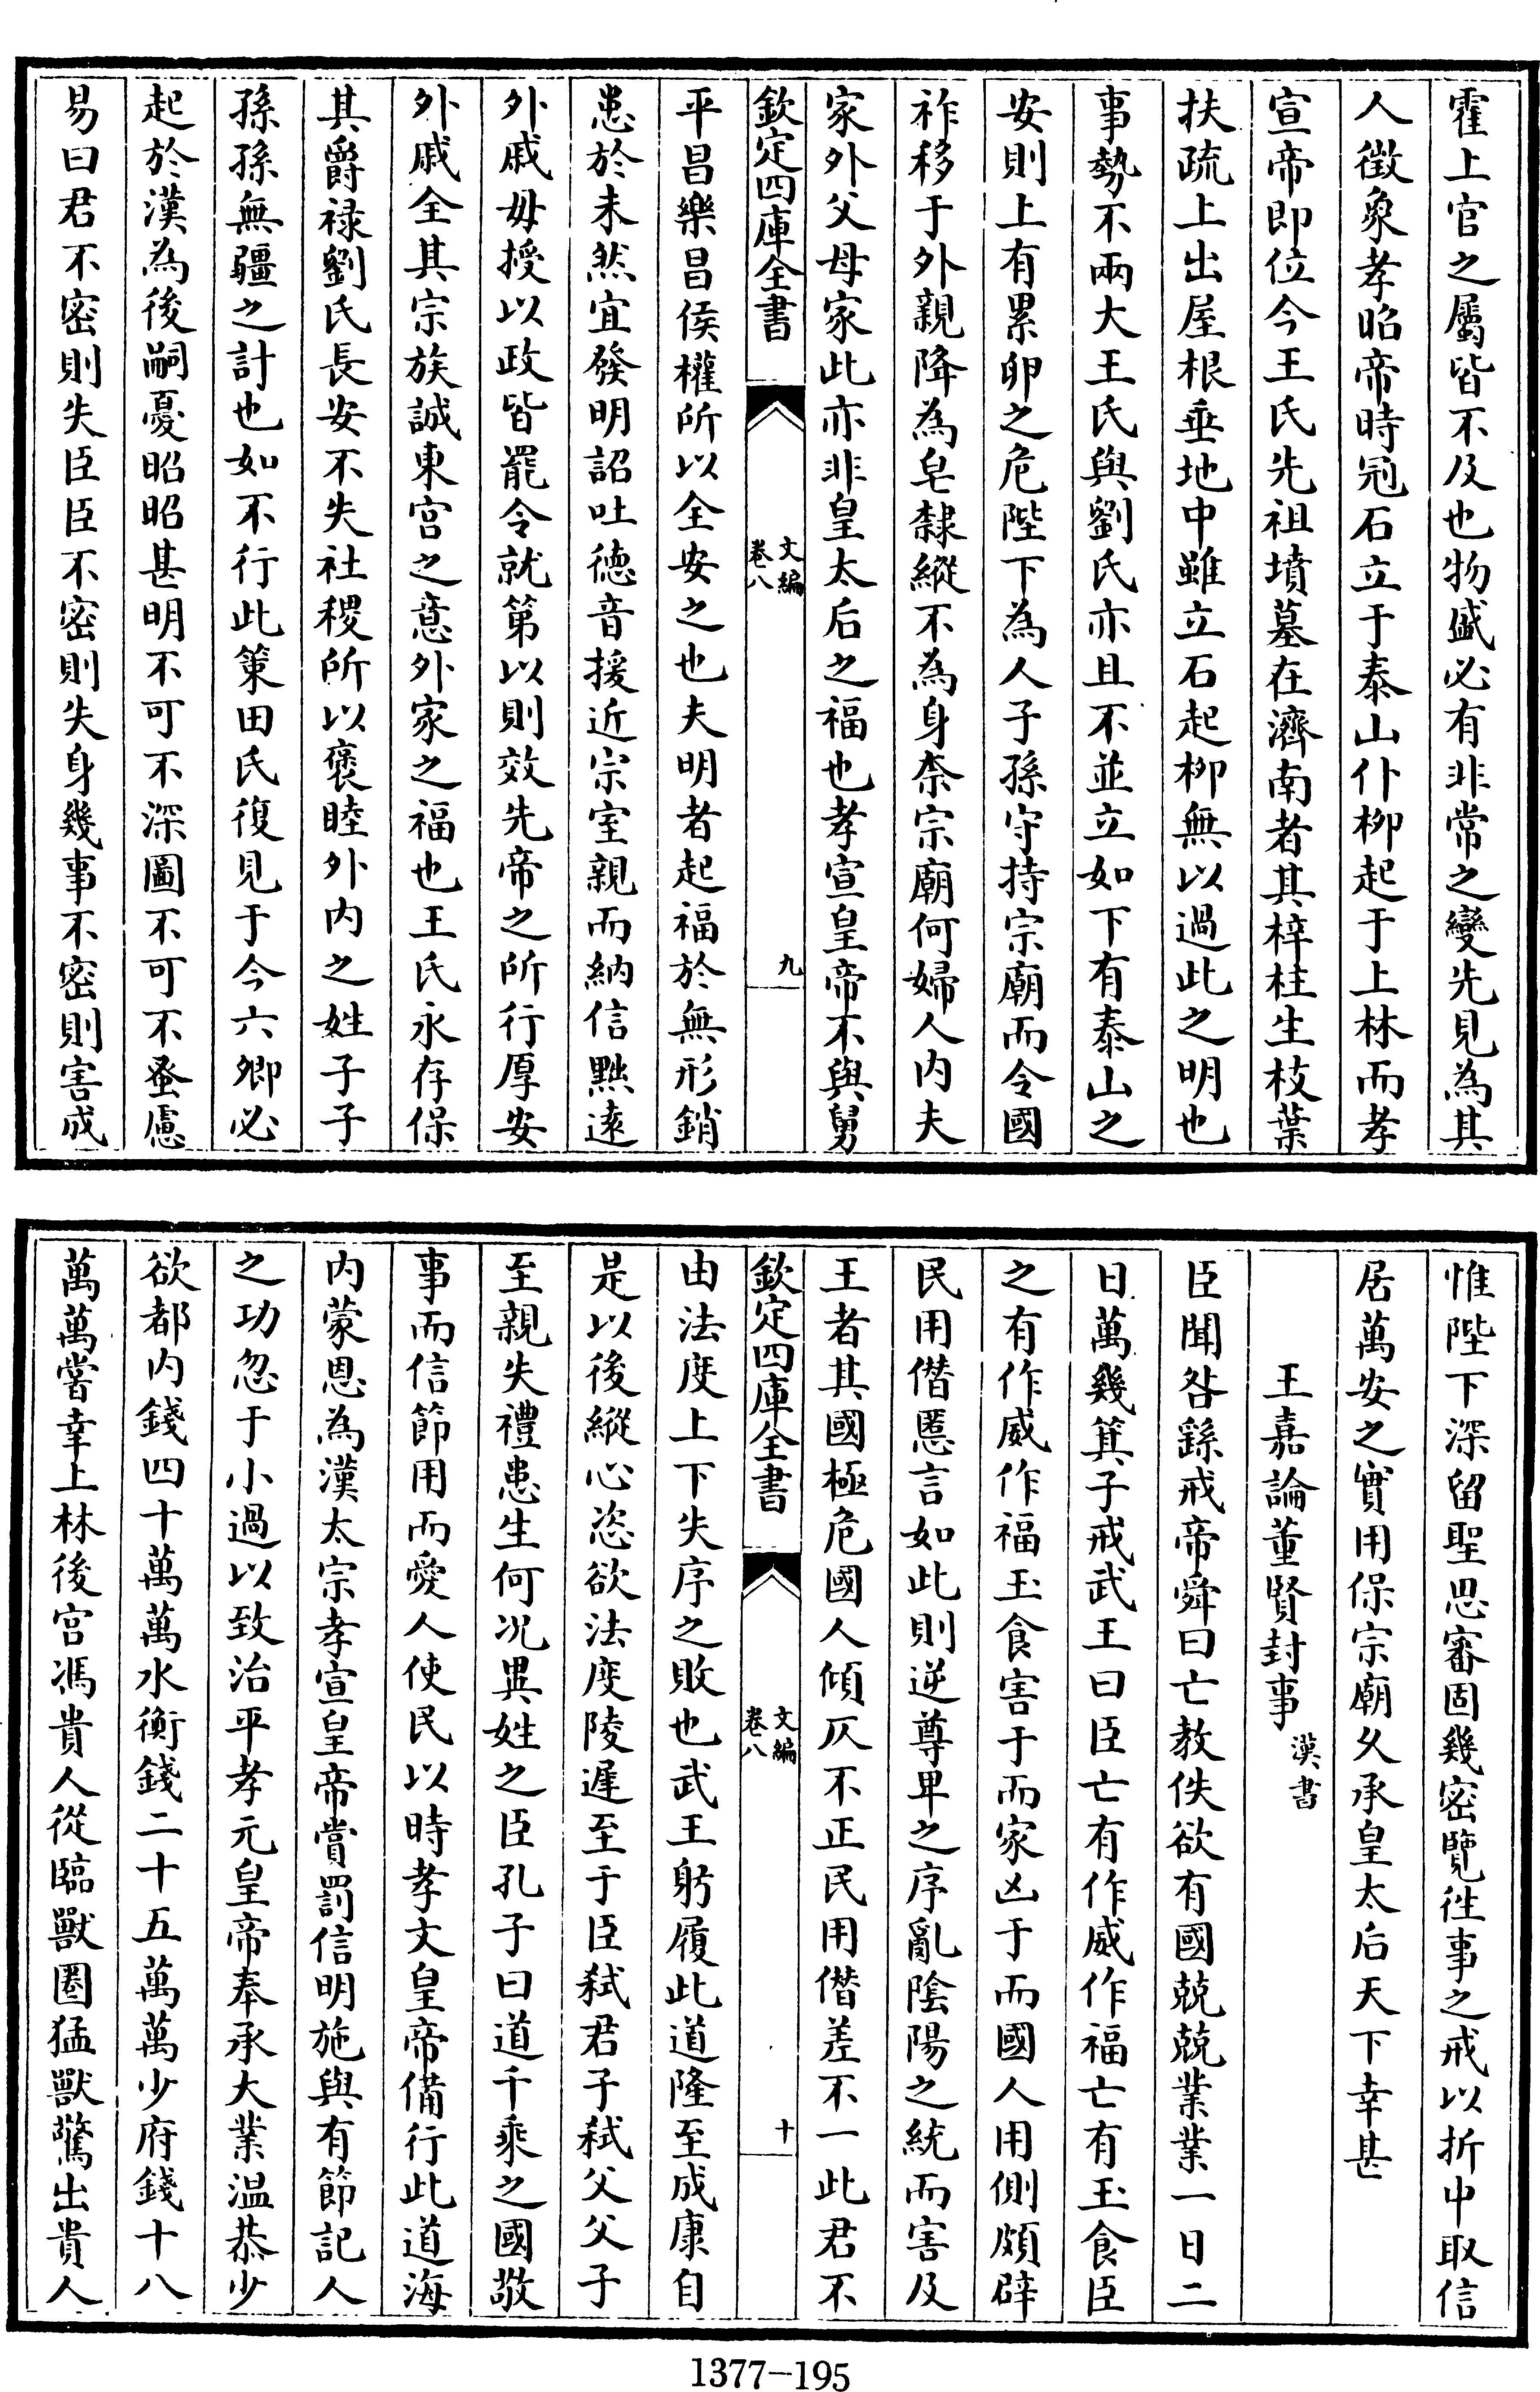 霍上官之屬皆不及也物盛必有非常之變先見為其
人徴象孝昭帝時冠石立于泰山仆桺起于上林而孝
宣帝即位今王氏先祖墳墓在濟南者其梓柱生枝葉
扶疏上出屋根垂地中雖立石起桺無以過此之明也
事勢不兩大王氏與劉氏亦且不並立如下有泰山之
安則上有累卵之危陛下為人子孫守持宗廟而令國
祚移于外親降為皂隸縱不為身奈宗廟何婦人内夫
家外父母家此亦非皇太后之福也孝宣皇帝不與舅
欽定四庫全書
文編
卷八
九
平昌樂昌侯權所以全安之也夫明者起福於無形銷
患於未然宜發明詔吐德音援近宗室親而納信黜逺
外戚毋授以政皆罷令就第以則效先帝之所行厚安
外戚全其宗族誠東宮之意外家之福也王氏永存保
其爵禄劉氏長安不失社稷所以褒睦外内之姓子子
孫孫無疆之計也如不行此策田氏復見于今六卿必
起於漢為後嗣憂昭昭甚明不可不深圖不可不蚤慮
易曰君不密則失臣臣不密則失身幾事不密則害成
惟陛下深留聖思審固幾密覽徃事之戒以折中取信
居萬安之實用保宗廟久承皇太后天下幸甚
王嘉論董賢封事 漢書
臣聞咎繇戒帝舜曰亡教佚欲有國兢兢業業一日二
日萬幾箕子戒武王曰臣亡有作威作福亡有玉食臣
之有作威作福玉食害于而家凶于而國人用側頗辟
民用僭慝言如此則逆尊卑之序亂陰陽之統而害及
王者其國極危國人傾仄不正民用僭差不一此君不
欽定四庫全書
文編
卷八
十
由法度上下失序之敗也武王躬履此道隆至成康自
是以後縱心恣欲法度陵遲至于臣弑君子弑父父子
至親失禮患生何况異姓之臣孔子曰道千乘之國敬
事而信節用而愛人使民以時孝文皇帝備行此道海
内蒙恩為漢太宗孝宣皇帝賞罰信明施與有節記人
之功忽于小過以致治平孝元皇帝奉承大業温恭少
欲都内錢四十萬萬水衡錢二十五萬萬少府錢十八
萬萬嘗幸上林後宮馮貴人從臨獸圈猛獸驚出貴人
1377-195